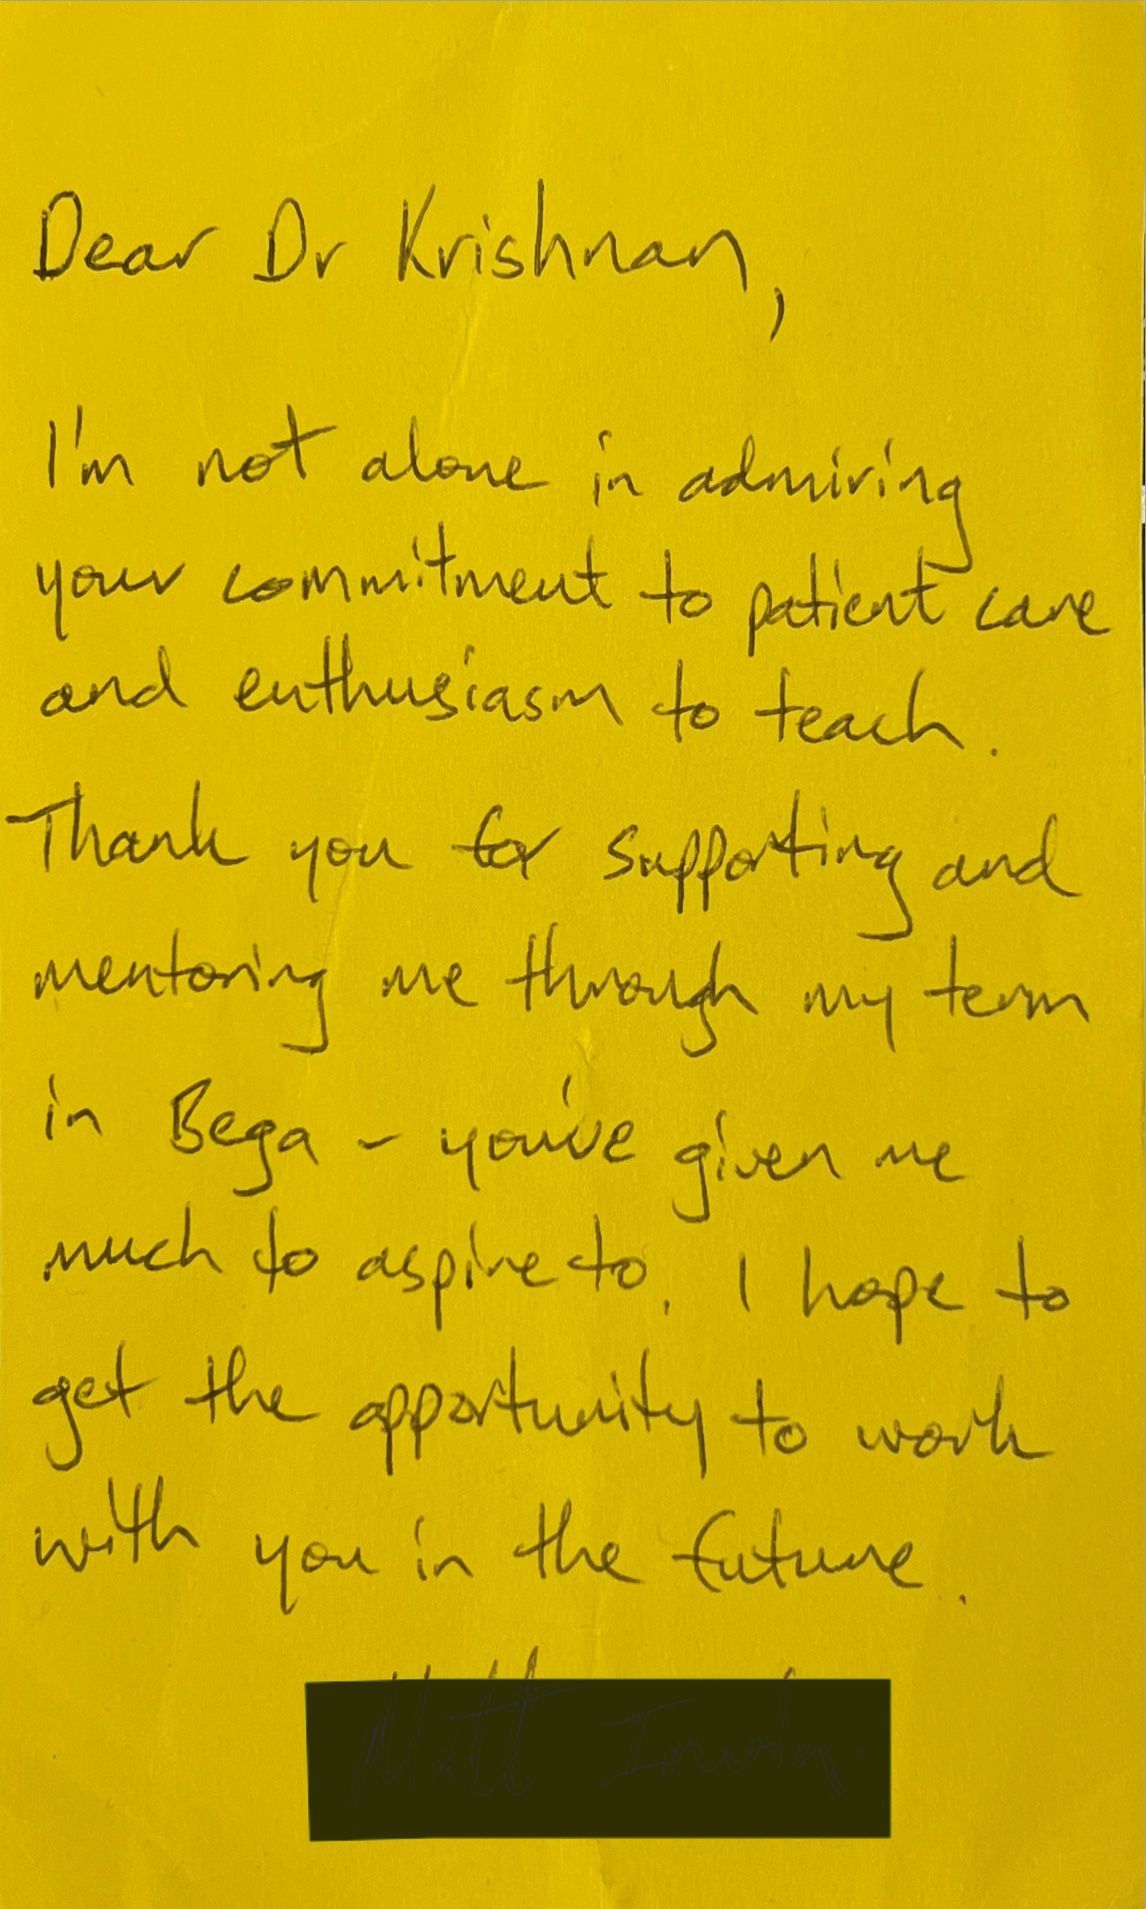 Dear Dr Krishnan,
I'm not alone in admiring
your commitment to patient care
and enthusiasm to teach.
Thank you for supporting and
mentoring me through my term
in Bega - you've given me
much to aspire to. I hope to
get the opportunity to work
with you in the future.